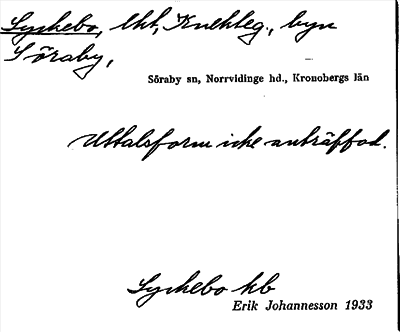 Lyckebo, lht, Knekteg., byn
Söraby,
Söraby sn, Norrvidinge hd., Kronobergs län
Uttalsform icke anträffad.
Lyckebo kb
Erik Johannesson 1933